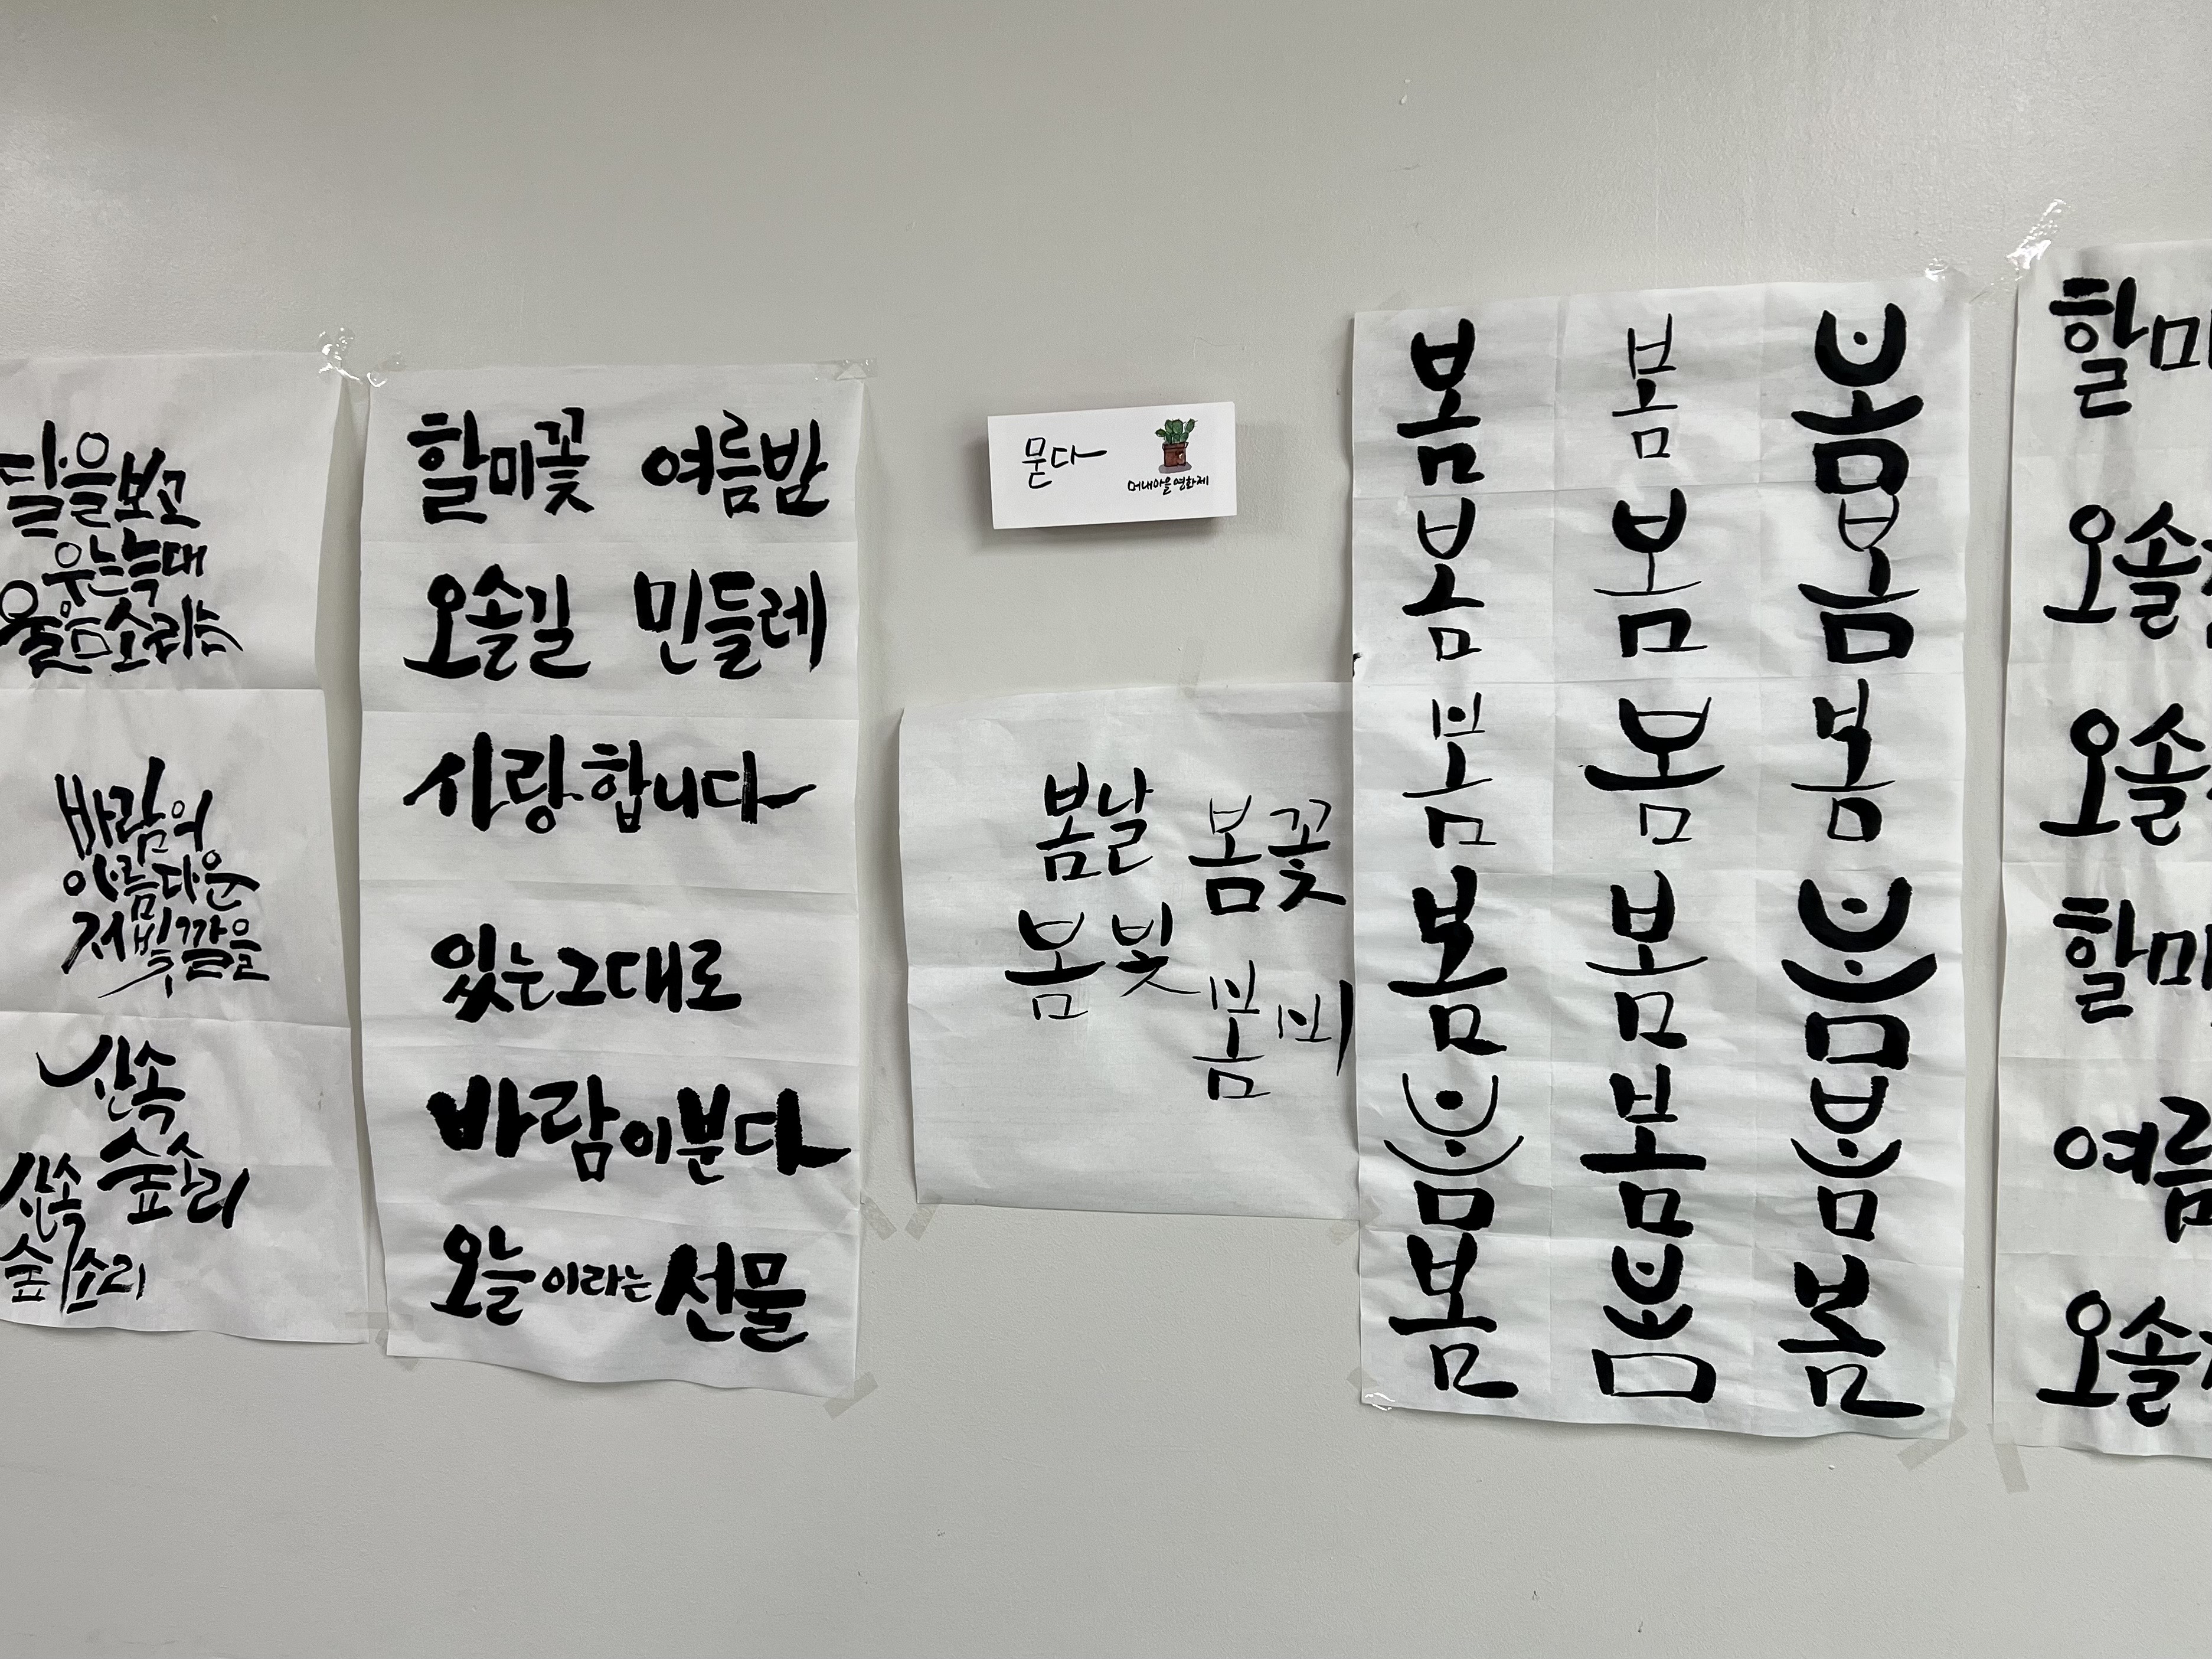 달을보고
우는늑대
울음소리는
바람의
아름다운
저빛깔을
산속
숲소리
산속
숲소리
할미꽃 여름밤
오솔길 민들레
사랑합니다
있는그대로
바람이분다
오늘이라는선물
묻다
머내마을영화제
봄날 봄꽃
봄빛 봄비
봄 봄 봄
봄 봄 봄
봄 봄 봄
봄 봄 봄
봄 봄 봄
봄 봄 봄
할미
오솔
오솔
할미
여름
오솔